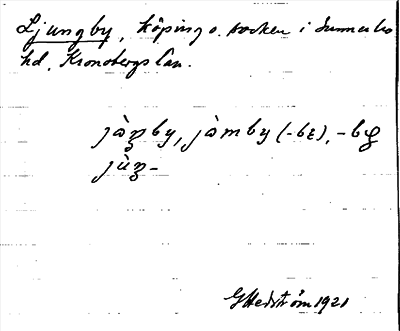 Ljungby, köping o. socken i Sunnerbo
hd, Kronobergs län.
jàŋby, jàmby (-bɛ), -bɡ
jùŋ-
G Hedström 1921